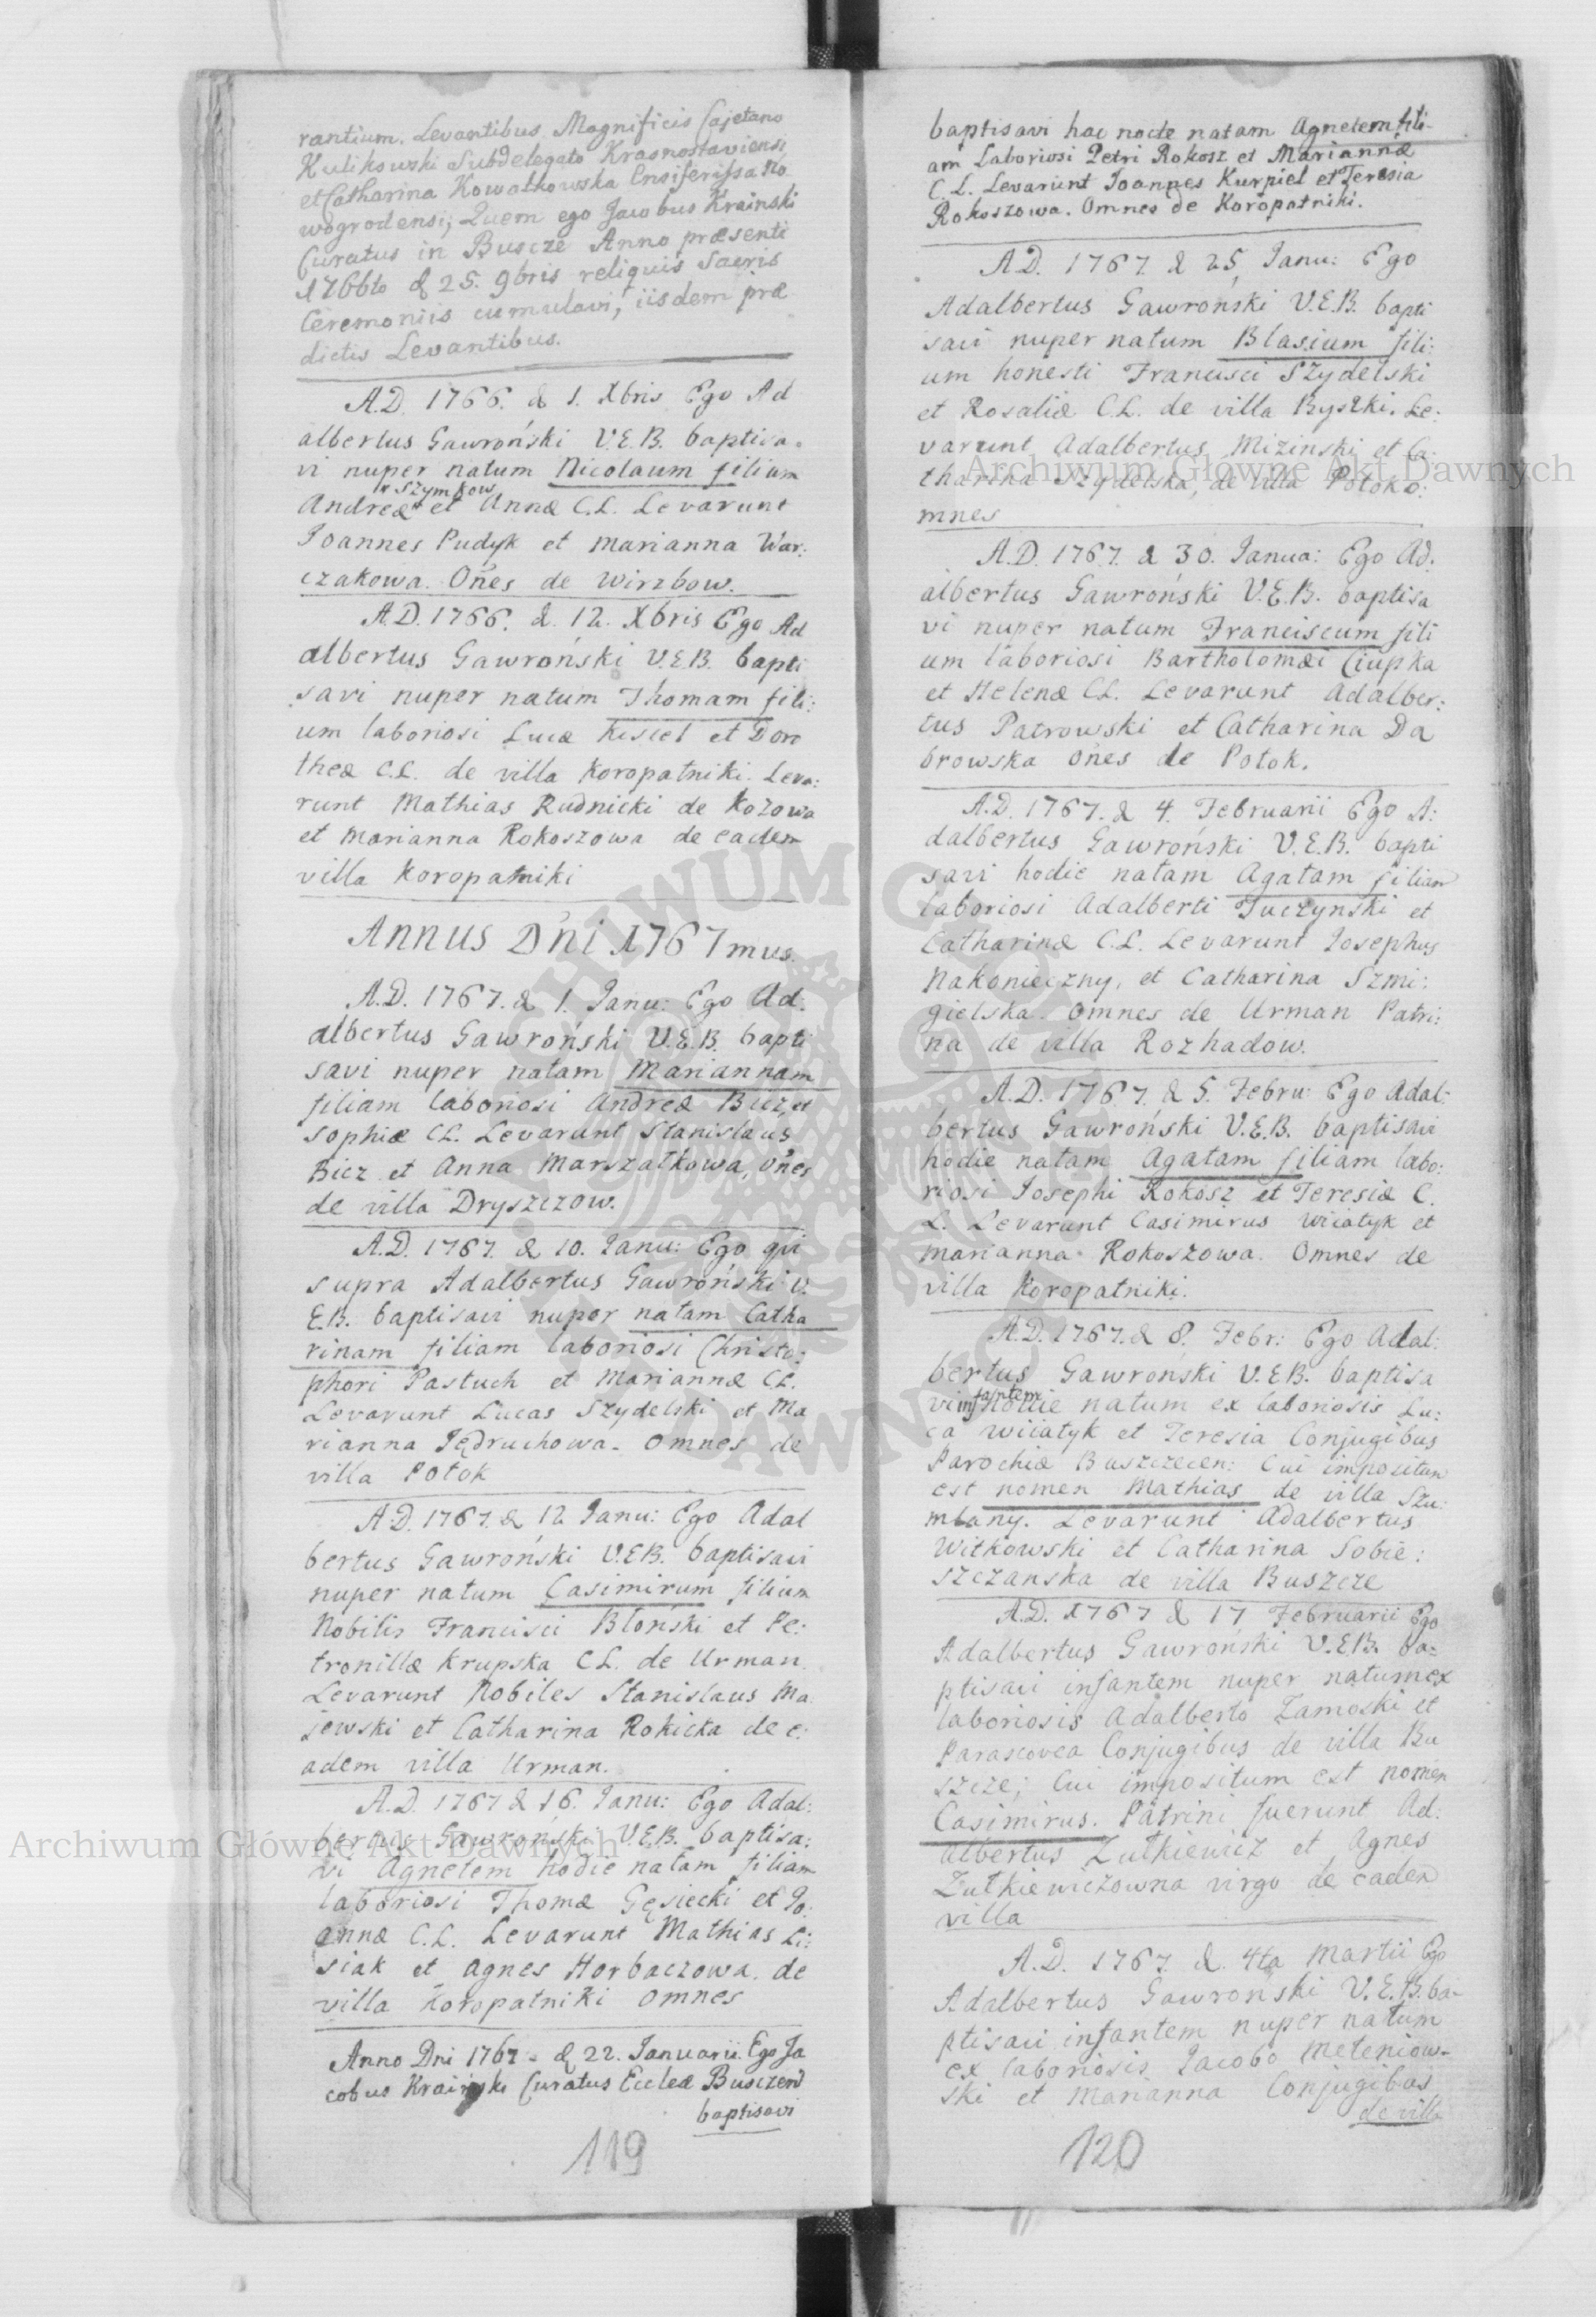 rantium. Levantibus Magnificis Cajetano
Kulikowski Subdelegato Krasnostaviensi
et Catharina Kowalkowska Ensiferissa No
wogrodensi; Quem ego Jacobus Krainski
Curatus in Buscze Anno præsenti
1766to d 25. 9bris reliquis Sacris
Ceremoniis cumulavi, iisdem præ
dictis Levantibus.
A.D. 1766. d 1. Xbris Ego Ad
albertus Gawroński V.E.B. baptisa-
vi nuper natum Nicolaum filium
Szymkow
Andreæ et Annæ C.L. Levarunt
Joannes Pudyk et Marianna War:
czakowa. Oñes de Wirzbow.
A.D. 1766. d. 12. Xbris Ego Ad
albertus Gawroński V.E.B. bapti
savi nuper natum Thomam fili:
um laboriosi Lucæ Kisiel et Doro
theæ C.L. de villa Koropatniki. Leva:
runt Mathias Rudnicki de Kozowa
et Marianna Rokoszowa de eadem
villa Koropatniki
Annus Dñi 1767mus.
A.D. 1767. d 1. Janu: Ego Ad:
albertus Gawroński V.E.B. bapti
savi nuper natam Mariannam
filiam laboriosi Andreæ Bicz et
Sophiæ CL. Levarunt Stanislaus
Bicz et Anna Marszałkowa, Oñes
de villa Dryszczow.
A.D. 1767. d 10. Janu: Ego qui
supra Adalbertus Gawroński V.
E.B. baptisavi nuper natam Catha
rinam filiam laboriosi Christo:
phori Pastuch et Mariannæ CL.
Levarunt Lucas Szydelski et Ma
rianna Jędruchowa. Omnes de
villa Potok
A.D. 1767. d 12 Janu: Ego Adal
bertus Gawroński V.E.B. baptisavi
nuper natum Casimirum filium
Nobilis Francisci Błoński et Pe:
tronillæ Krupska CL. de Urman.
Levarunt Nobiles Stanislaus Ma
jewski et Catharina Rokicka de e:
adem villa Urman.
A.D. 1767 d 16. Janu: Ego Adal:
bertus Gawroński V.E.B. baptisa:
vi Agnetem hodie natam filiam
laboriosi Thomæ Gęsiecki et Jo:
annæ C.L. Levarunt Mathias Li:
siak et Agnes Horbaczowa. de
villa Koropatniki Omnes
Anno Dni 1767 - d 22. Januarii. Ego Ja
cobus Kraiński Curatus Eccleæ Busczen
baptisavi
119
baptisavi hac nocte natam Agnetem fili-
am Laboriosi Petri Rokosz et Mariannæ
C.L. Levarunt Joannes Kurpiel et Teresia
Rokoszowa. Omnes de Koropatniki.
A.D. 1767. d 25 Janu: Ego
Adalbertus Gawroński V.E.B. bapti
savi nuper natum Blasium fili:
um honesti Francisci Szydelski
et Rosaliæ C.L. de villa Byszki. Le:
varunt Adalbertus Mizinski et Ca:
tharina Szydelska, de villa Potok O:
mnes
A.D. 1767. d 30. Janua: Ego Ad:
albertus Gawroński V.E.B. baptisa
vi nuper natum Franciscum fili
um laboriosi Bartholomæi Ciupka
et Helenæ CL. Levarunt Adalber:
tus Patrowski et Catharina Da
browska Oñes de Potok.
A.D. 1767. d 4. Februarii Ego A:
dalbertus Gawroński V.E.B. bapti
savi hodie natam Agatam filiam
laboriosi Adalberti Tuczynski et
Catharinæ C.L. Levarunt Josephus
Nakonieczny, et Catharina Szmi:
gielska. Omnes de Urman Patri:
na de villa Rozhadow.
A.D. 1767. d 5. Febru: Ego Adal:
bertus Gawroński V.E.B. baptisavi
hodie natam Agatam filiam labo:
riosi Josephi Rokosz et Teresiæ C.
L. Levarunt Casimirus Wiiatyk et
Marianna Rokoszowa. Omnes de
villa Koropatniki.
A.D. 1767. d 8. Febr: Ego Adal:
bertus Gawroński V.E.B. baptisa
vi infantem hodie natum ex laboriosis Lu:
ca Wiiatyk et Teresia Conjugibus
Parochiæ Buszczecen: Cui impositum
est nomen Mathias de villa Szu:
mlany. Levarunt Adalbertus
Witkowski et Catharina Sobie:
szczanska de villa Buszcze
A.D. 1767 d 17 Februarii Ego
Adalbertus Gawroński V.E.B. ba-
ptisavi infantem nuper natum ex
laboriosis Adalberto Zamoski et
Parascovea Conjugibus de villa Bu
szcze; Cui impositum est nomen
Casimirus. Patrini fuerunt Ad:
albertus Zutkiewicz et Agnes
Zutkiewiczowna virgo de eadem
villa
A.D. 1767. d. 4ta Martii Ego
Adalbertus Gawroński V.E.B. ba-
ptisavi infantem nuper natum
ex laboriosis Jacobo Meteniow-
ski et Marianna Conjugibus
de villa
120
Archiwum Główne Akt Dawnych
Archiwum Główne Akt Dawnych